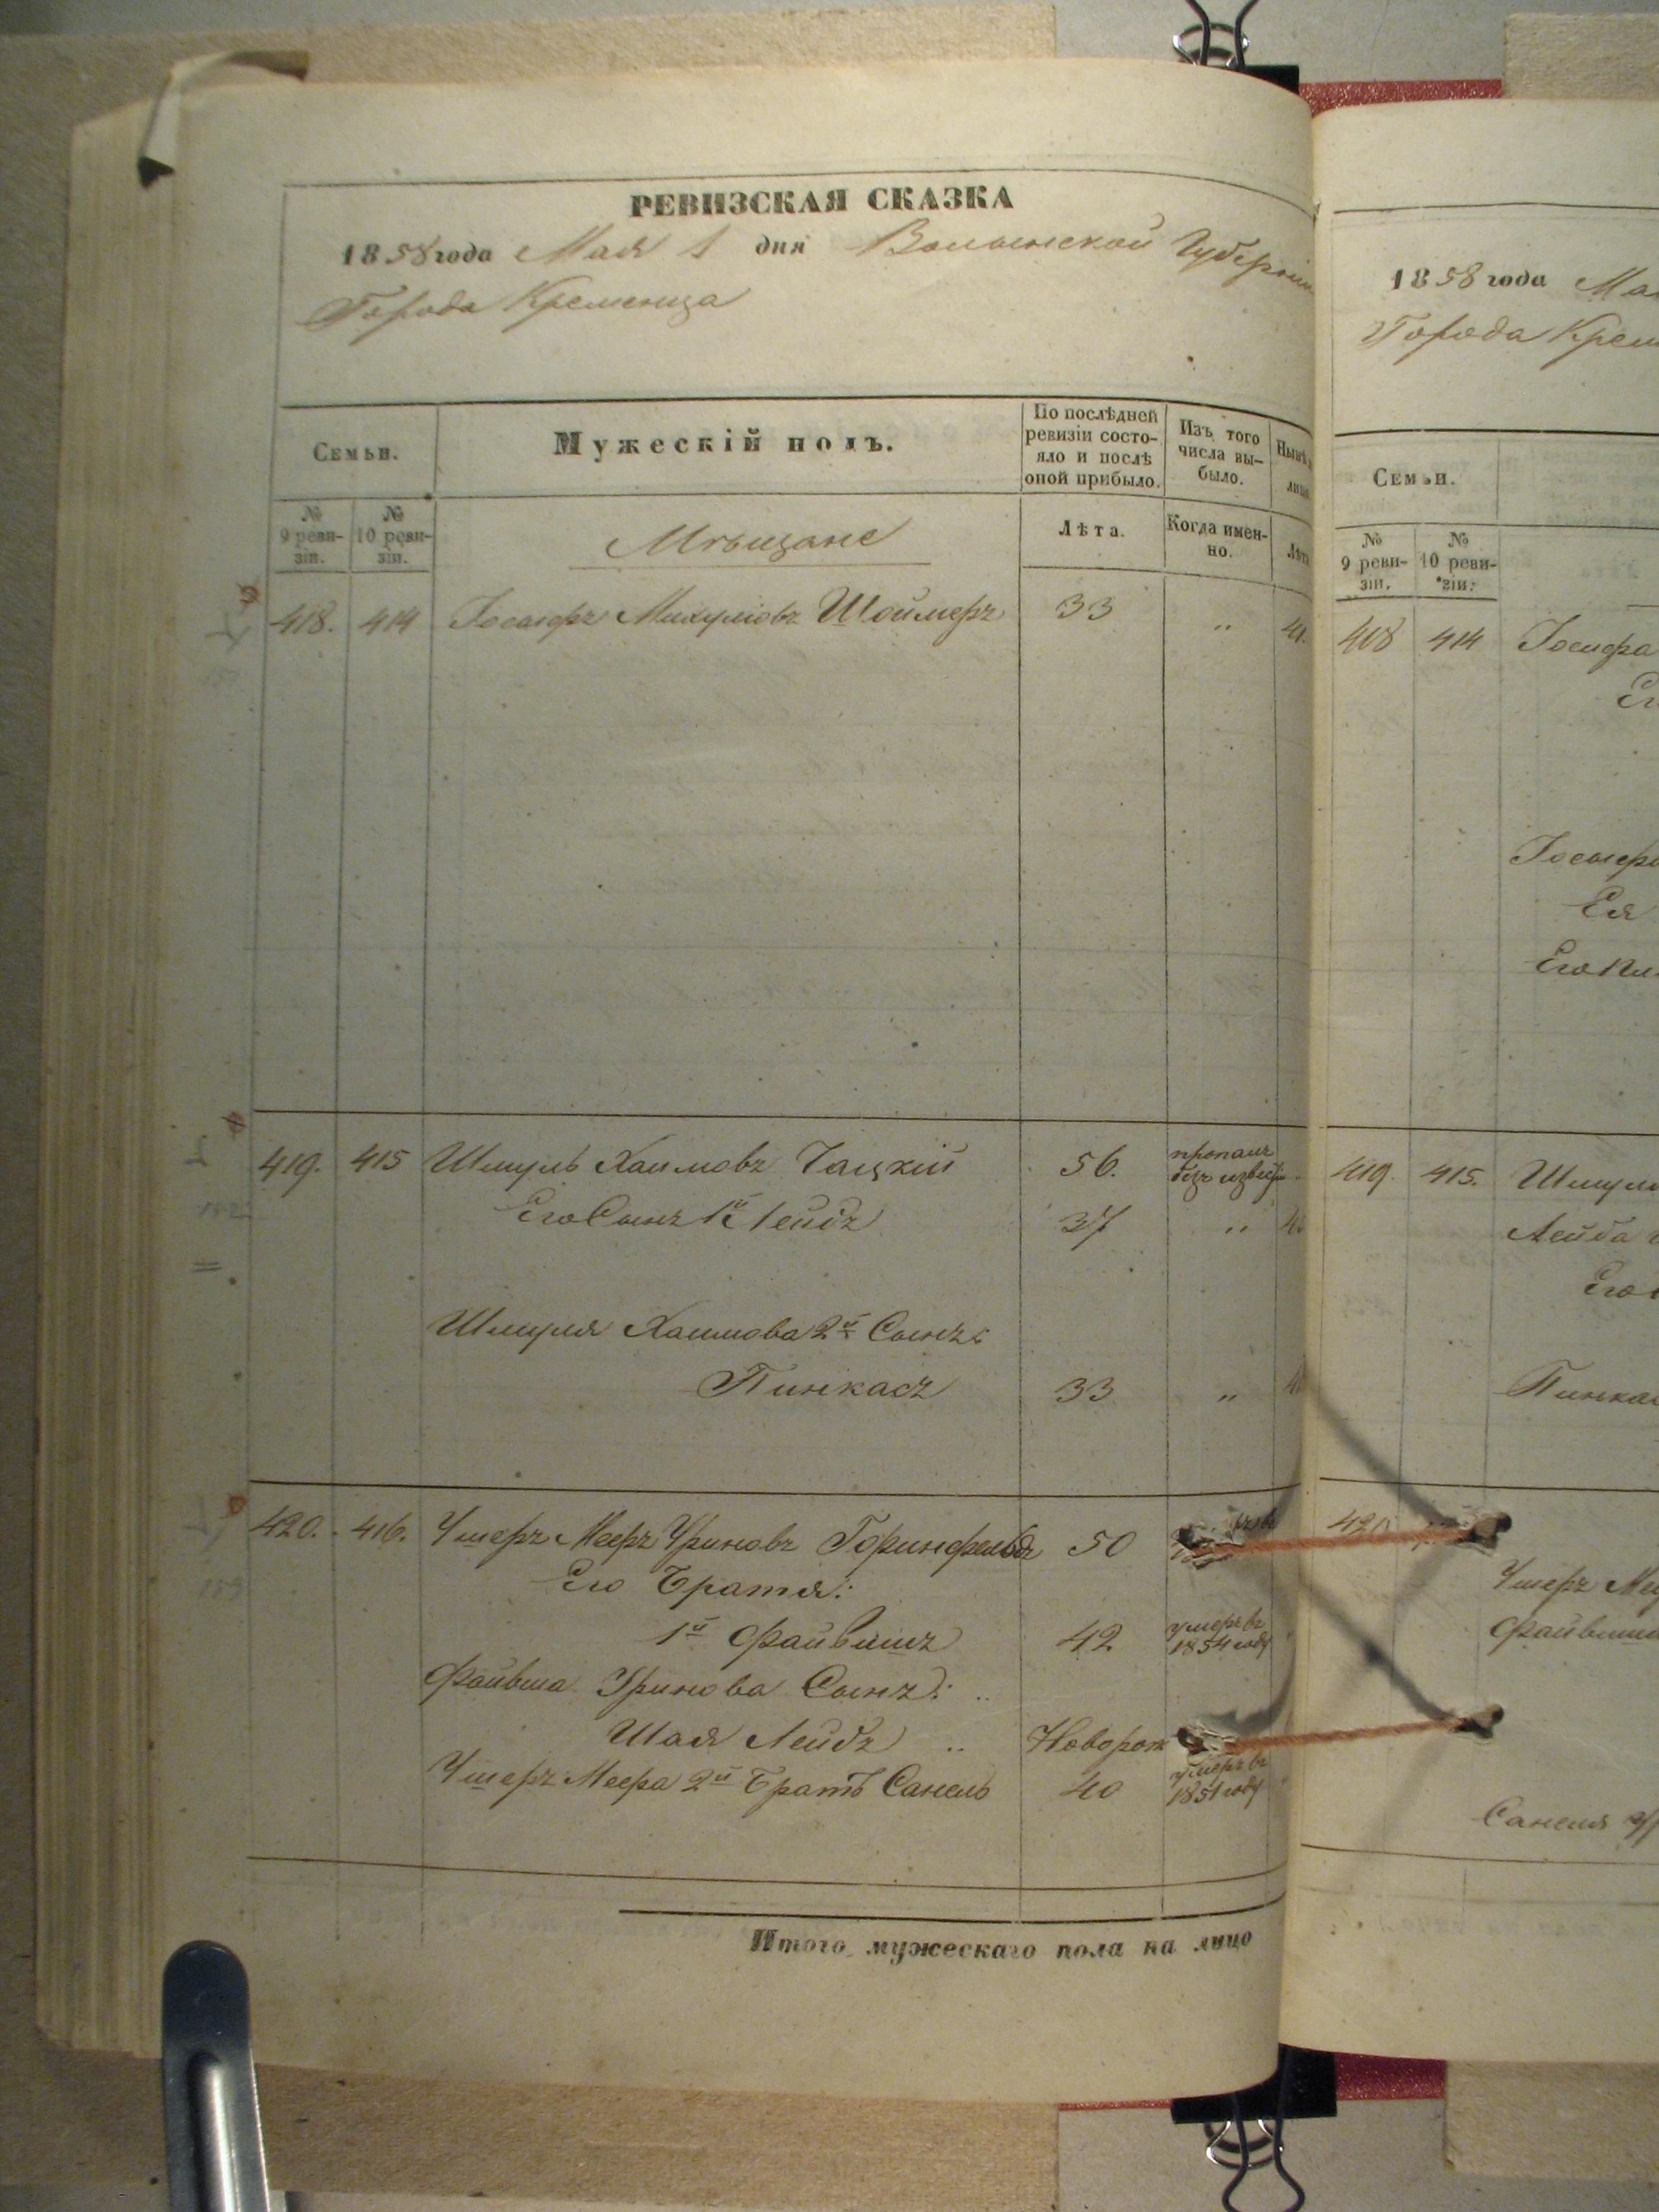 РЕВИЗСКАЯ СКАЗКА
1858 года Мая 1 дня Волынской Губерніи
Города Кременца
Семьи.
Мужескій полъ.
По послѣдней ревизіи состо-
яло и послѣ
оной прибыло.
Изъ того
числа вы-
было.
Нынѣ
лицо
№
9 реви-
зіи.
№
10 реви-
зіи.
Мѣщане
Лѣта.
Когда имен-
но.
Лѣта
418. 414 Іосифъ 33 „ 41.
419. 415 Шмуль Хаимовъ Чацкій 56. пропалъ
безъ извѣст
Его Сынъ 1й Лейбъ 37 „
Шмуля Хаимова 2й Сынъ
Пинкасъ 33 „
420. 416. Ушеръ Мееръ Уриновъ Горинфельдъ 50
Его Братья:
1й Файвишъ 42 умеръ въ
1854 году
Файвша Уринова Сынъ:
Шая Лейбъ Новорож
Ушеръ Меера 2й Братъ Санель 40 умеръ въ
1851 году
Итого мужескаго пола на лицо
1858 года Ма
Города Крем
Семьи.
№
9 реви-
зіи.
№
10 реви-
зіи.
408 414
Его
Ея
419. 415. Шмуля
Лейба
Его
Пинкас
420
Ушеръ Ме
Файвиша
Санеля У